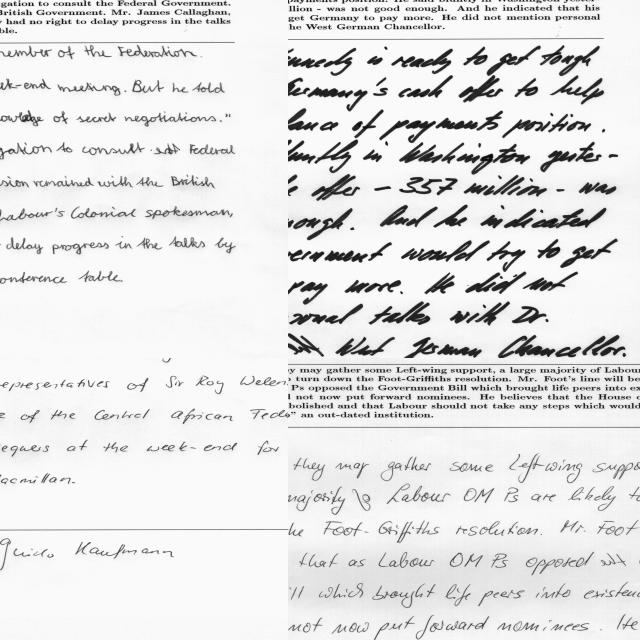 gation to consult the Federal Government.
British Government. Mr. James Callaghan,
had no right to delay progress in the talks
ble.
member of the Federation.
ek-end meeting. But he told
of secret negotiations."
gation to consult Federal
sion remained with the British
Labour's Colonial spokesman,
delay progress in the talks by
conference table.
epresentatives of Sir Roy Welen
of the Central African Fede
equers at the week-end for
acmillan.
Guido Kaufmann
payments position. He said bluntly in Washington yester-
llion - was not good enough. And he indicated that his
get Germany to pay more. He did not mention personal
he West German Chancellor.
nnedy is ready to get tough
Germany's cash offer to help
lance of payments position.
luntly in Washington yester-
offer - 357 million - was
nough. And he indicated
ernment would try to get
pay more. He did not
sonal talks with Dr.
West German Chancellor.
ey may gather some Left-wing support, a large majority of Labour
turn down the Foot-Griffiths resolution. Mr. Foot's line will be
Ps opposed the Government Bill which brought life peers into ex
not now put forward nominees. He believes that the House o
bolished and that Labour should not take any steps which would
" an out-dated institution.
they may gather some Left-wing suppo
majority Labour OM Ps are likely to
he Foot-Griffiths resolution. Mr. Foot
that as Labour OM Ps opposed
ill which brought life peers into existenc
not now put forward nominees. He